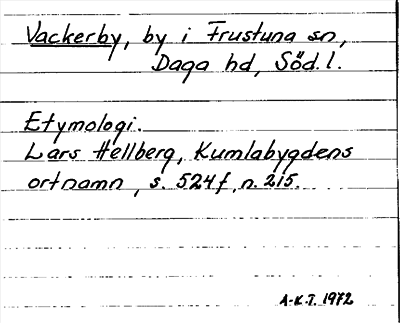 Vackerby, by i Frustuna sn,
Daga hd, Söd.l.
Etymologi.
Lars Hellberg, Kumlabygdens
ortnamn, s. 524f, n. 215.
A-K.T. 1972